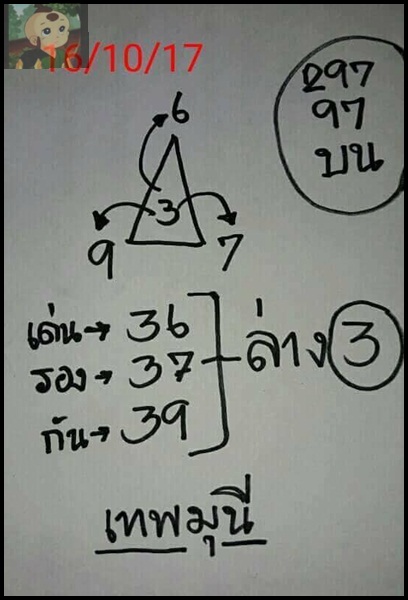 16/10/17
297
97
บน
6
3
9 7
เด่น→ 36
รอง→ 37
กัน→ 39
ล่าง 3
เทพมุนี